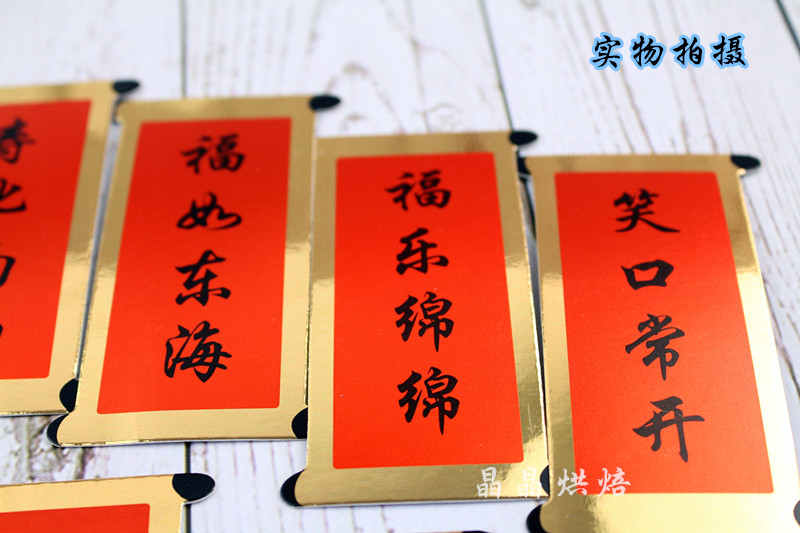 实物拍摄
福如东海
福乐绵绵
笑口常开
晶晶烘焙